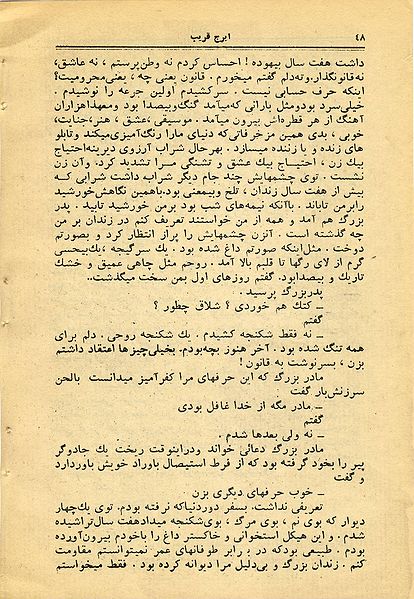 ۴۸
ایرج قریب
داشت هفت سال بیهوده ! احساس کردم نه وطن‌پرستم ، نه عاشق،
نه قانونگذار. وته‌دلم گفتم میخورم . قانون یعنی چه ، یعنی محرومیت؟
اینکه حرف حسابی نیست . سرکشیدم اولین جرعه را نوشیدم .
خیلی سرد بود ومثل بارانی که میآمد گنگ وبیصدا بود ومعهذا هزاران
آهنگ از هر قطره‌اش بیرون میآمد . موسیقی ، عشق ، هنر، جنایت،
خوبی ، بدی همین مزخرفاتی که دنیای مارا رنگ آمیزی میکند وتابلو
های زنده و یا زننده میسازد . بهرحال شراب آرزوی دیرینه احتیاج
بیك زن ، احتیاج بیك عشق و تشنگی مرا تشدید کرد. وآن زن
نشست . توی چشمهایش چند جام دیگر شراب داشت شرابی که
بیش از هفت سال زندان ، تلخ وبیمعنی بود. باهمین نگاهش خورشید
رابرمن تاباند . باآنکه نیمه‌های شب بود برمن خورشید تابید . پدر
بزرگ هم آمد و همه از من خواستند تعریف کنم در زندان بر من
چه گذشته است . آنزن چشمهایش را پراز انتظار کرد و بصورتم
دوخت . مثل اینکه صورتم داغ شده بود . یك سرگیجه ، یك بیحسی
گرم از لای رگها تا قلبم بالا آمد . روحم مثل چاهی عمیق و خشك
تاریك و بیصدا بود. گفتم روزهای اول بمن سخت میگذشت..
پدربزرگ پرسید .
ــ کتك هم خوردی ؟ شلاق چطور ؟
گفتم
ــ نه فقط شکنجه کشیدم . یك شکنجه روحی . دلم برای
همه تنگ شده بود . آخر هنوز بچه بودم. بخیلی چیزها اعتقاد داشتم
بزن ، بسرنوشت به قانون !
مادر بزرگ که این حرفهای مرا کفرآمیز میدانست بالحن
سرزنش‌بار گفت
ــ مادر مگه از خدا غافل بودی
گفتم
ــ نه ولی بعدها شدم .
مادر بزرگ دعائی خواند ودراینوقت ریخت یك جادوگر
پیر را بخود گرفته بود که از فرط استیصال باوراد خویش باور دارد
و گفت
ــ خوب حرفهای دیگری بزن
تعریفی نداشت. بسفر دوردنیا که نرفته بودم. توی یك چهار
دیوار که بوی نم ، بوی مرگ ، بوی شکنجه میداد هفت سال تراشیده
شدم . و این هیکل استخوانی و خاکستر داغ را باخودم بیرون آورده
بودم . طبیعی بود که در برابر طوفانهای عمر نمیتوانستم مقاومت
کنم . زندان بزرگ و بی‌دلیل مرا دیوانه کرده بود . فقط میخواستم